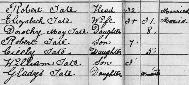 Robert Tate Head 32 Married
Elizabeth Tate Wife 31 Married
Dorothy May Tate Daughter 8
Robert Tate Son 7
Cicely Tate Daughter 5
William Tate Son
Gladys Tate Daughter